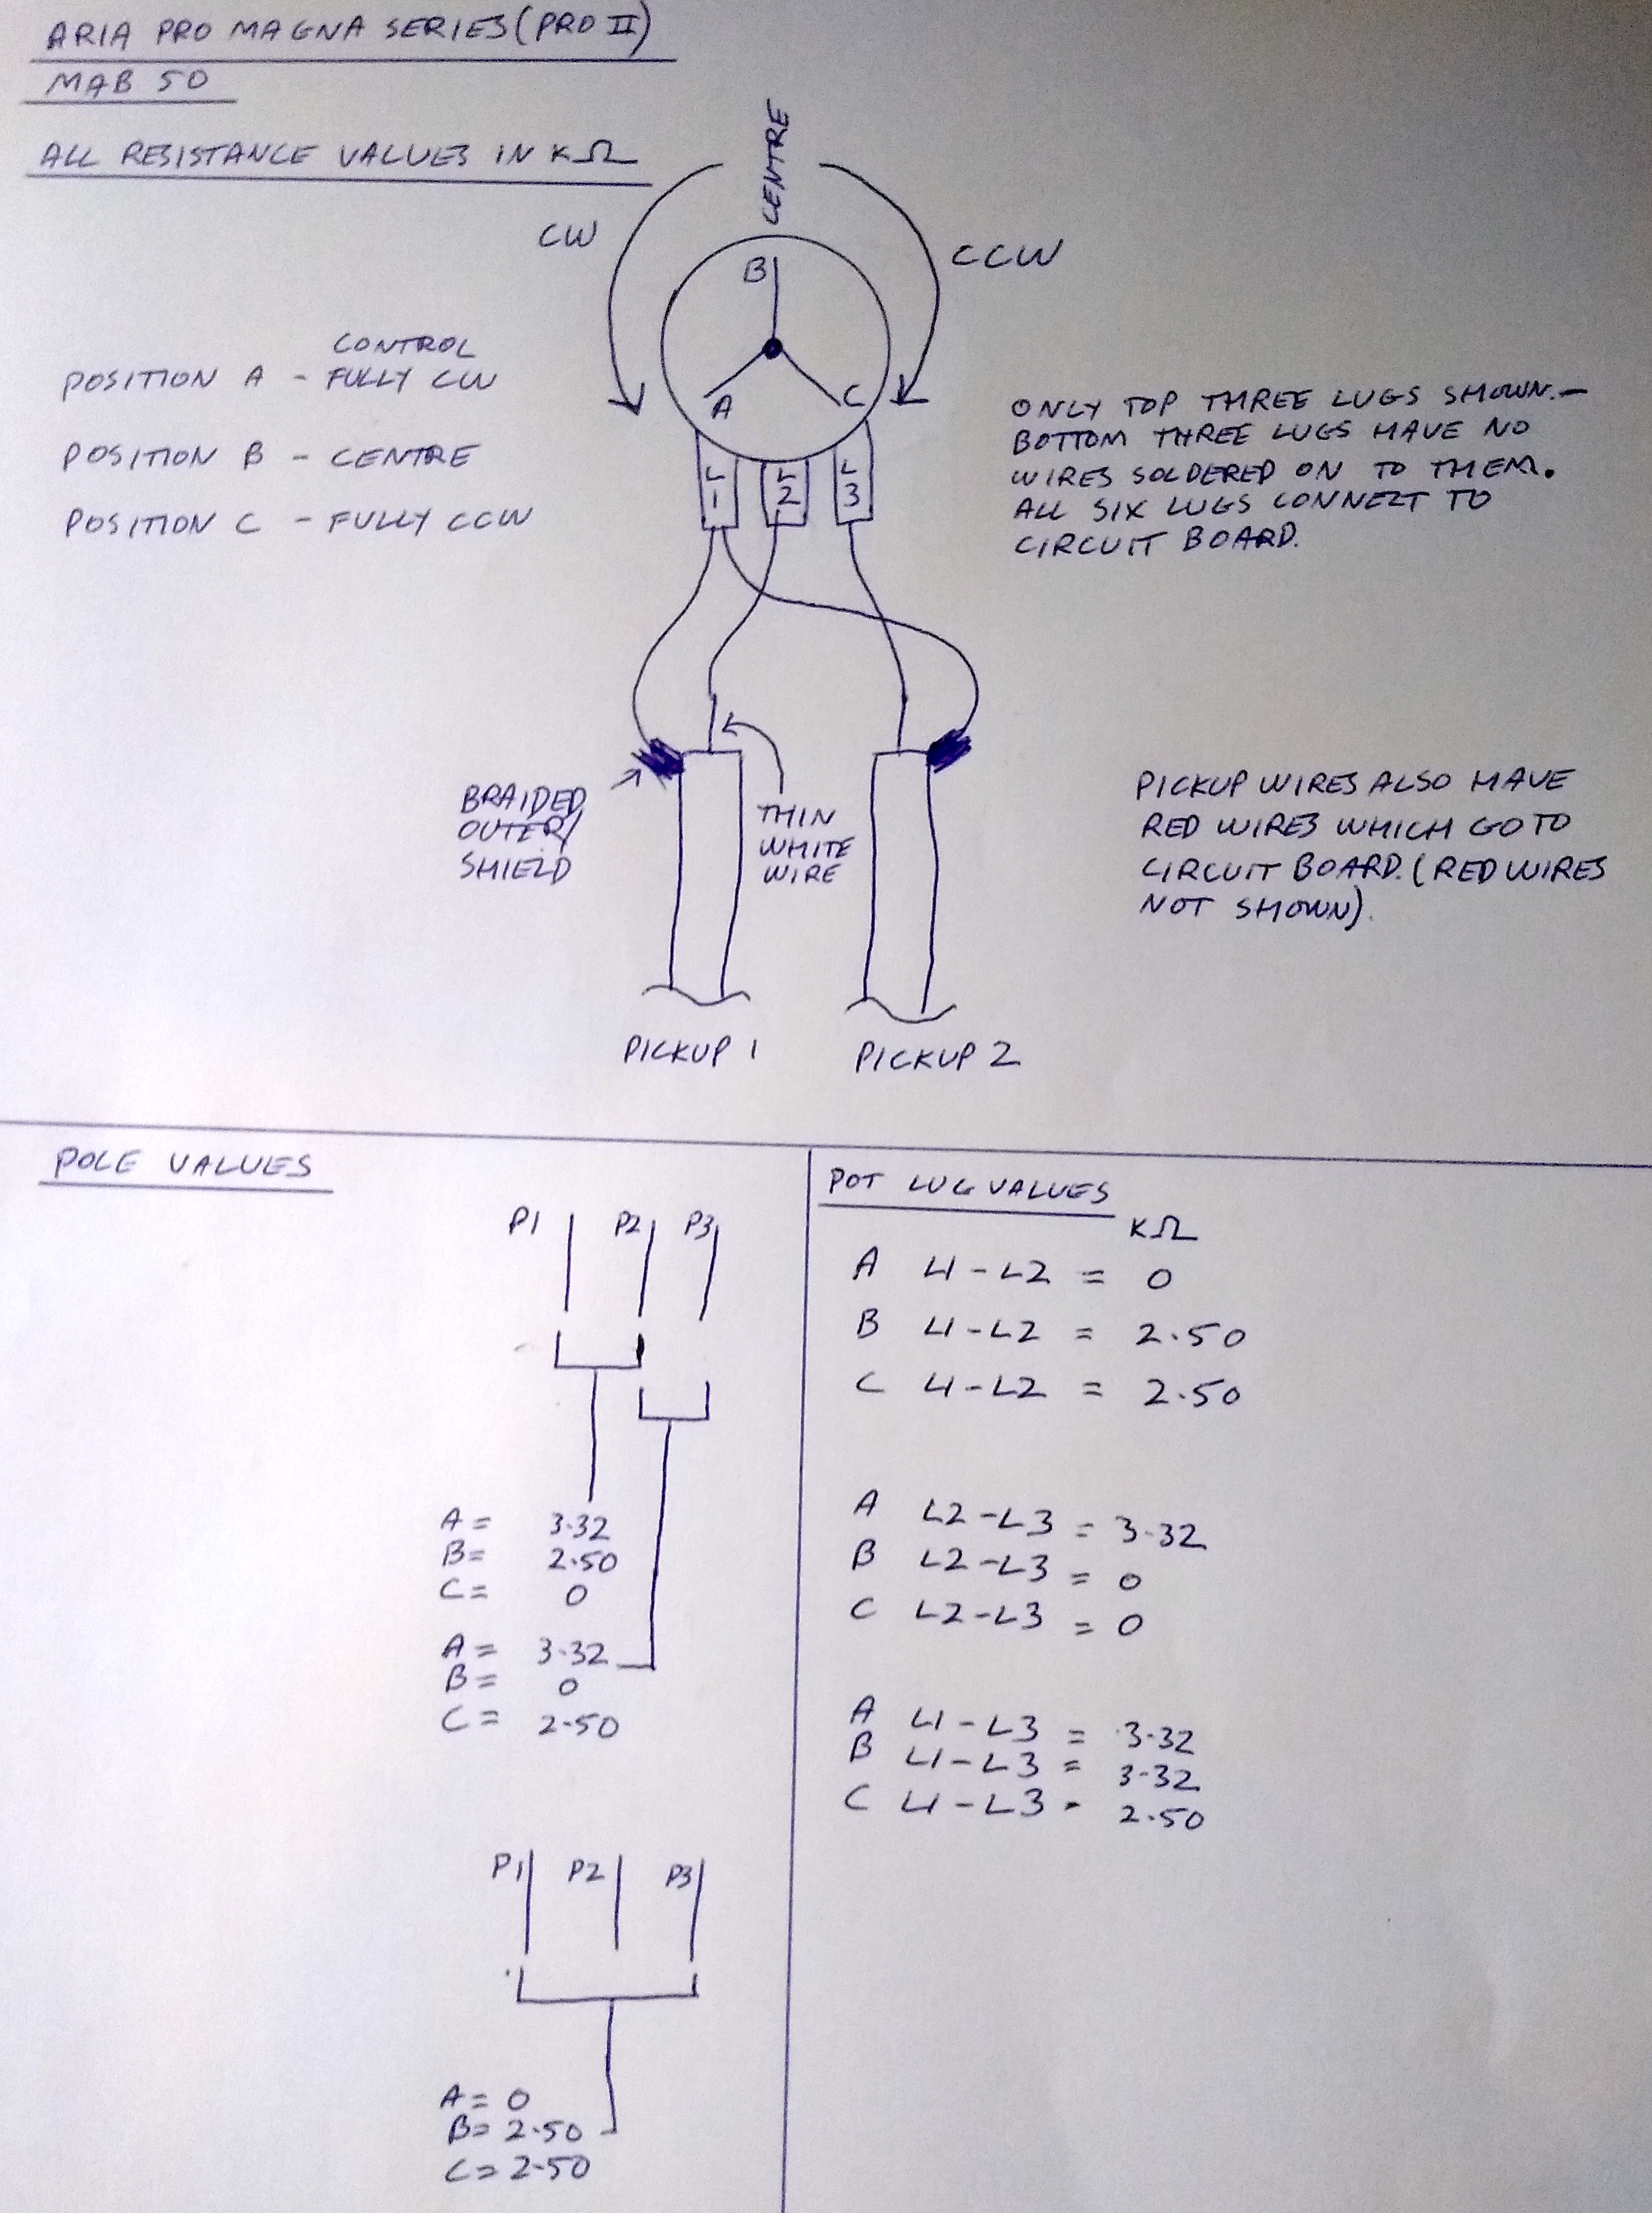 ARIA PRO MAGNA SERIES (PRO II)
MAB 50
ALL RESISTANCE VALUES IN KΩ
CENTRE
CW
CCW
B
A
C
CONTROL
POSITION A - FULLY CW
POSITION B - CENTRE
POSITION C - FULLY CCW
L1
L2
L3
ONLY TOP THREE LUGS SHOWN. -
BOTTOM THREE LUGS HAVE NO
WIRES SOLDERED ON TO THEM.
ALL SIX LUGS CONNECT TO
CIRCUIT BOARD.
BRAIDED
OUTER/
SHIELD
THIN
WHITE
WIRE
PICKUP WIRES ALSO HAVE
RED WIRES WHICH GO TO
CIRCUIT BOARD. (RED WIRES
NOT SHOWN).
PICKUP 1
PICKUP 2
POLE VALUES
P1 P2 P3
A = 3.32
B = 2.50
C = 0
A = 3.32
B = 0
C = 2.50
P1 P2 P3
A = 0
B = 2.50
C = 2.50
POT LUG VALUES
KΩ
A L1 - L2 = 0
B L1 - L2 = 2.50
C L1 - L2 = 2.50
A L2 - L3 = 3.32
B L2 - L3 = 0
C L2 - L3 = 0
A L1 - L3 = 3.32
B L1 - L3 = 3.32
C L1 - L3 - 2.50